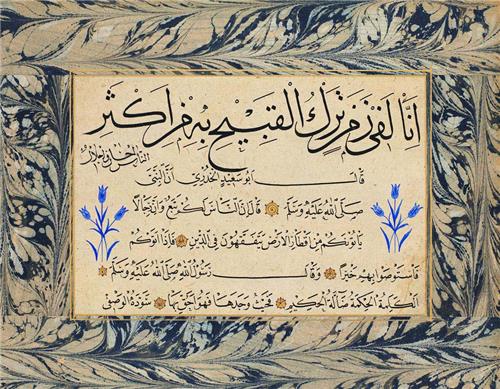 انا لفى زمن ترك القبيح به من اكثر
الناس احسان و اجمال
قال ابو سعيد الخدري ان النبي
صلى الله عليه وسلم قال ان الناس لكم تبع وان رجالا
يأتونكم من اقطار الارض يتفقهون في الدين فاذا اتوكم
فاستوصوا بهم خيرا وقال رسول الله صلى الله عليه وسلم
الكلمة الحكمة ضالة الحكيم فحيث وجدها فهو احق بها سوده الوصفي